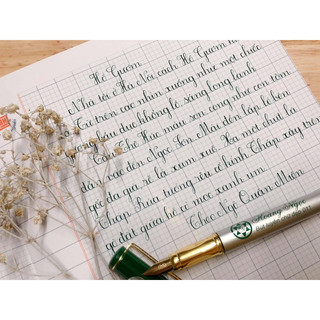 Hồ Gươm
Nhà tôi ở Hà Nội, cách Hồ Gươm
Từ trên cao nhìn xuống như một chiếc
gương bầu dục khổng lồ, sáng long lanh.
Cầu Thê Húc màu son, cong như con tôm
dẫn vào đền Ngọc Sơn. Mái đền lấp ló bên
gốc đa già, rễ lá xum xuê. Xa một chút là
Tháp Rùa, tường rêu cổ kính. Tháp xây trên
gò đất giữa hồ, cỏ mọc xanh um.
Theo Ngô Quân Miện
Hoàng Ngọc